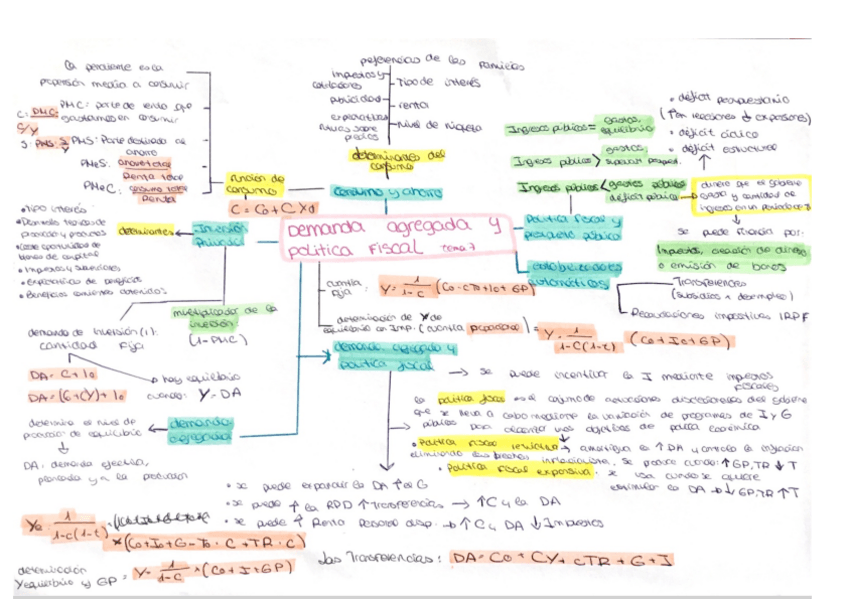 la pendiente es la
propensión media a consumir
C: PMC:
C/Y
PMC: parte de renta que
gastamos en consumir
S: PMS: S/Y
PMS: Parte destinada al
ahorro
PMeS: ahorro total
Renta total
PMeC: consumo total
Renta
función de
consumo
C = Co + C Yd
preferencias de las familias
impuestos y
Tipo de interés
publicidad
renta
expectativas
futuras sobre
precios
Nivel de riqueza
determinantes del
consumo
consumo y ahorro
Demanda agregada y
política Fiscal tema 7
Ingresos públicos = gastos
equilibrio
Ingresos públicos > gastos
superavit presup.
Ingresos públicos < gastos públicos
déficit público
• déficit presupuestario
• déficit cíclico
• déficit estructural
quiere que el gobierno
cantidad de
ingresos en un periodo de T
se puede financiar por:
Impuestos, creación de dinero
o emisión de bonos
Política fiscal y
presupuesto público
estabilizadores
automáticos
Transferencias
(subsidios a desempleo)
Recaudaciones impositivas IRPF
• Tipo interés
• Demanda
•
bienes de capital
• Impuestos y subvenciones
• Expectativas de beneficios
• Beneficios obtenidos
determinantes
Inversión
Privada
multiplicador de la
inversión
(1-PMC)
demanda de inversión (I):
cantidad fija
DA = C + Io
DA = (C+CY) + Io
hay equilibrio
cuando: Y = DA
determina el nivel de
producción de equilibrio
demanda
agregada
DA: demanda efectiva,
planeada y la producción
cuantía
fija:
Y = 1/1-C (Co - cTo + Io + GP)
determinación de Y de
equilibrio con Imp. (cuantía proporcional) = Y = 1/1-C(1-t) (Co + Io + GP)
demanda agregada y
política fiscal
se puede incentivar la I mediante impuestos
fiscales
la política fiscal es el conjunto de actuaciones discrecionales del gobierno
que se lleva a cabo mediante la variación de programas de I y G
públicos para alcanzar unos objetivos de política económica
• Política fiscal restrictiva → ↑ DA y controla la inflación
eliminando brechas inflacionistas, se produce cuando: ↑ GP, TR ↓ T
• Política Fiscal expansiva: se usa cuando se quiere
estimular la DA → ↓ GP, TR ↑ T
• se puede expandir la DA ↑ G
• se puede ↑ la RPD ↑ Transferencias → ↑ C y la DA
• se puede ↑ Renta Personal disp. → ↑ C y DA ↓ Impuestos
Ye = 1/1-c(1-t)
× (Co + Io + G - To · C + TR · C)
determinación
Y equilibrio y GP = Y = 1/1-C × (Co + I + GP)
Las Transferencias: DA = Co + CY + cTR + G + I